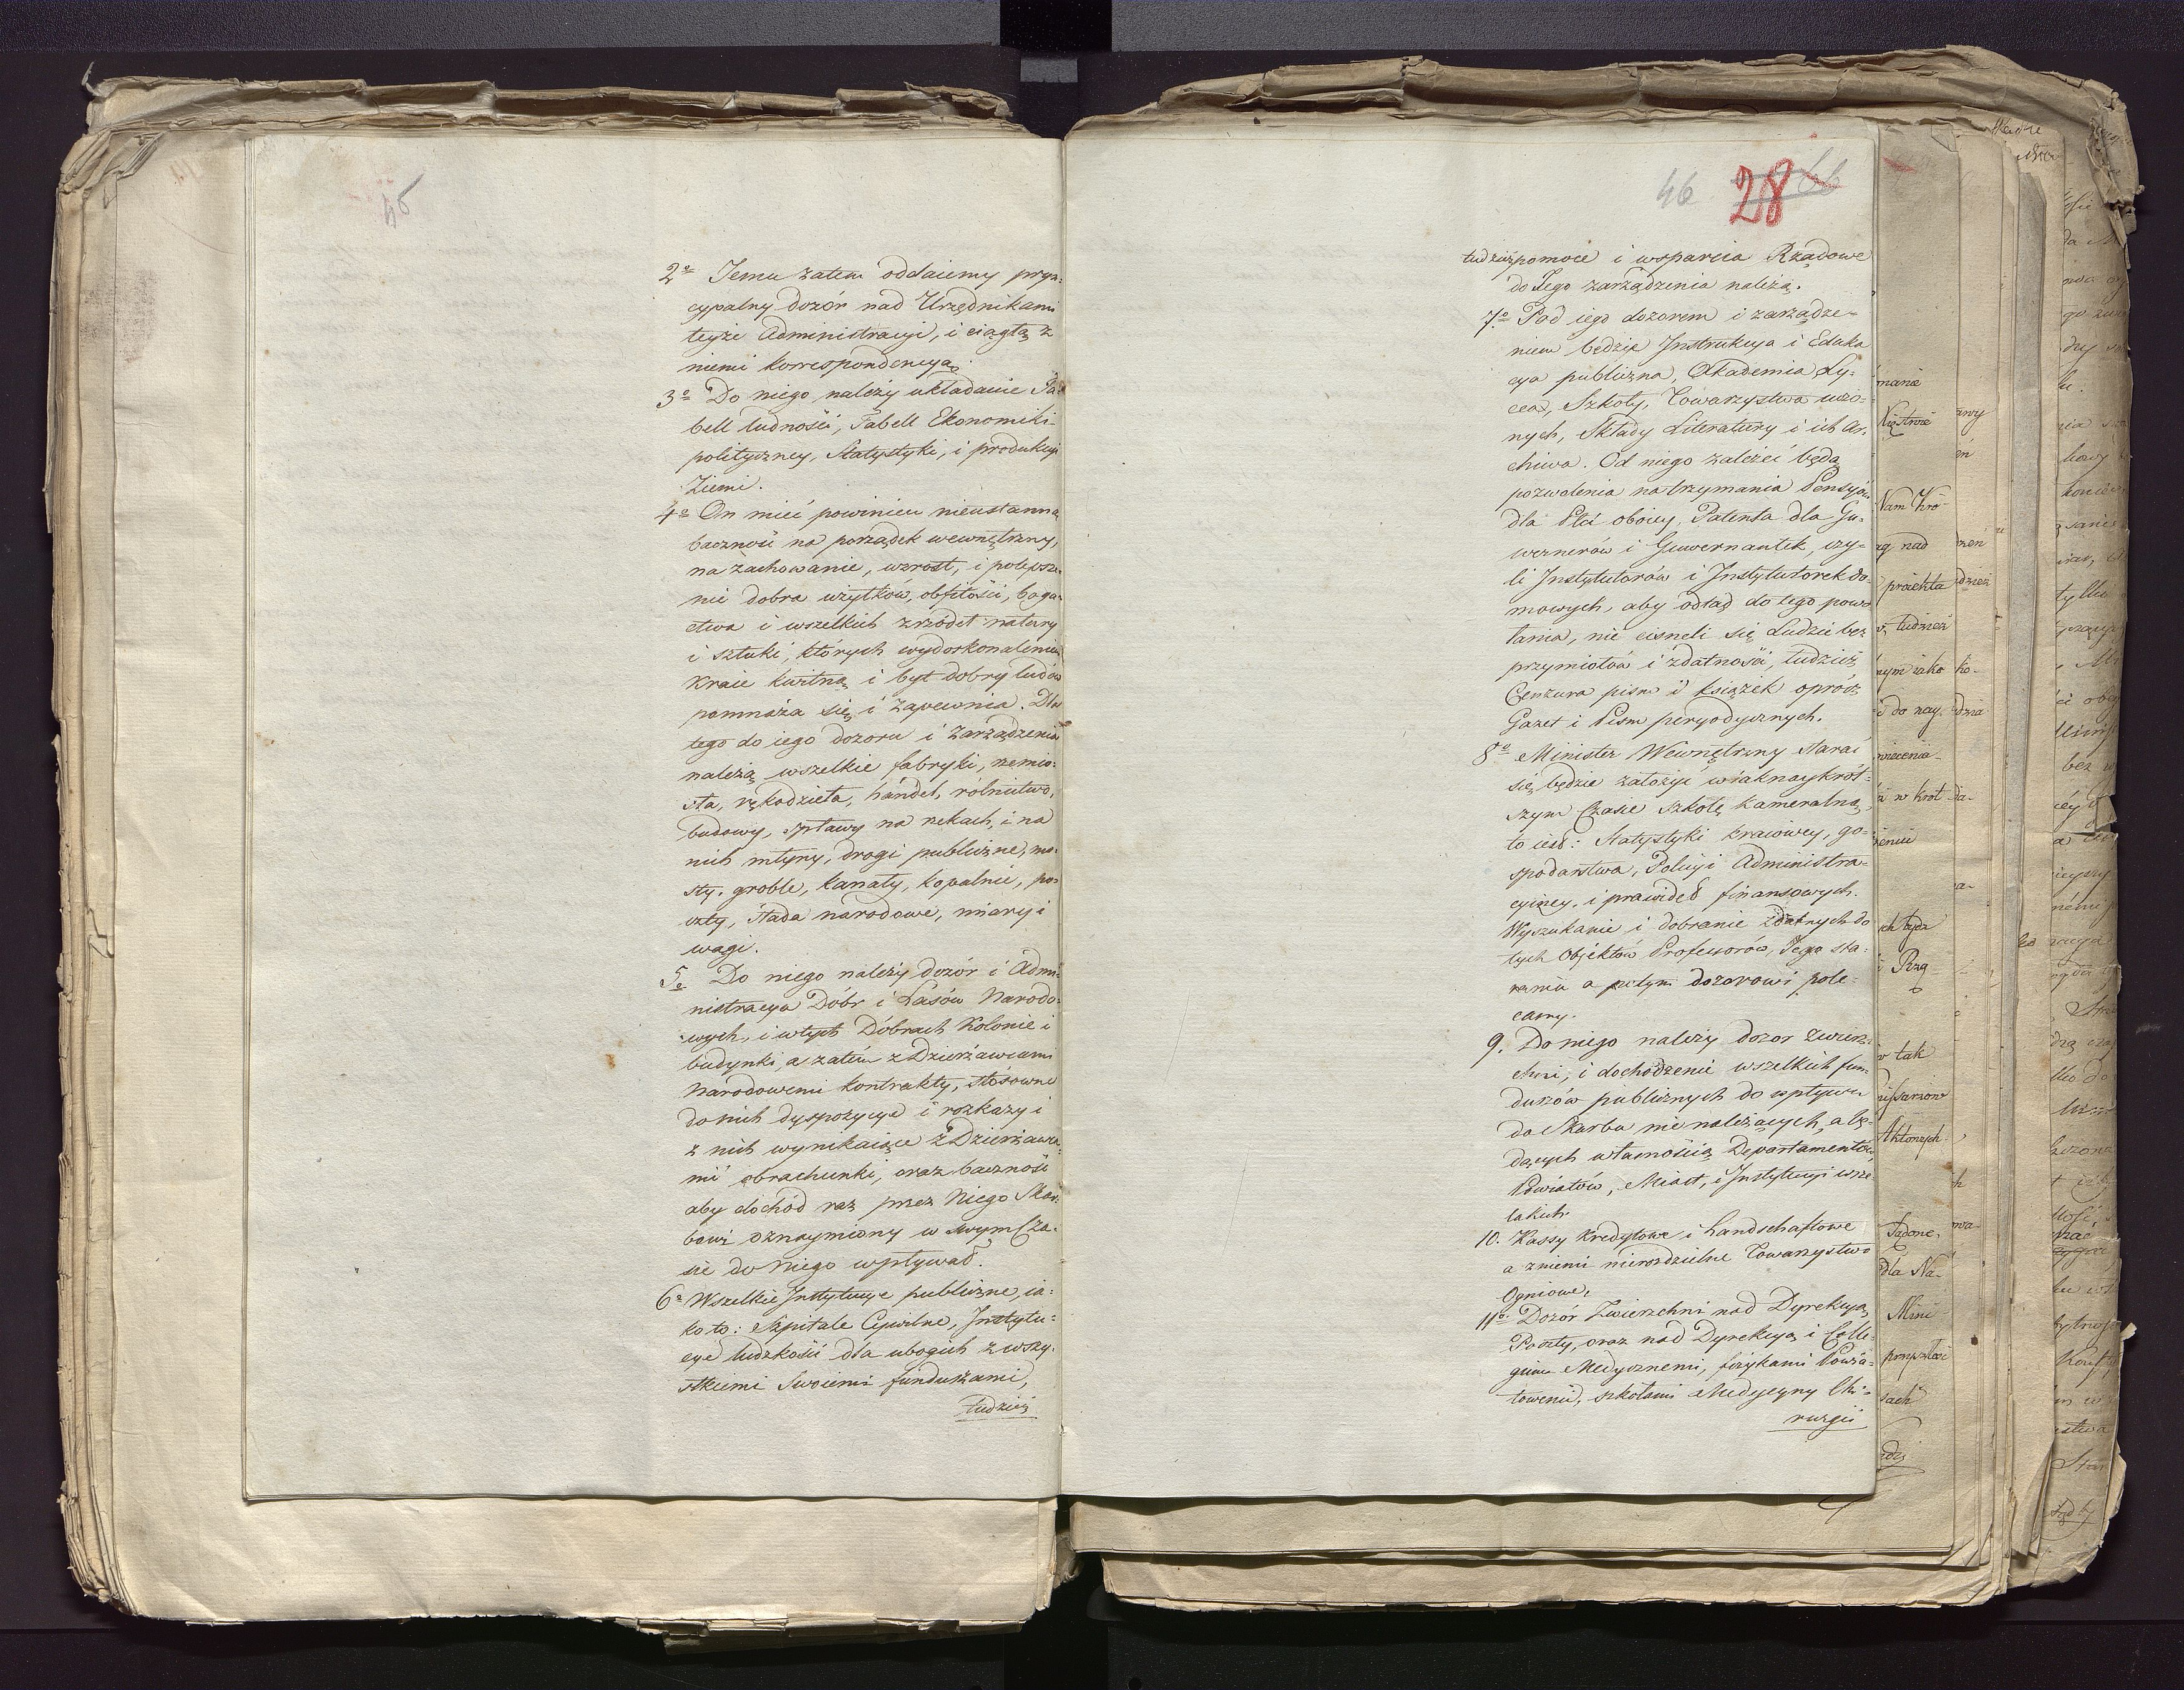 45
2o Jemu zatem oddaiemy pryn-
cypalny dozór nad Urzędnikami
teyże Administracyi, i ciągłą z
niemi korrespondencyą.
3o Do niego należy układanie Ta-
bell ludności, Tabell Ekonomiki-
polityczney, Statystyki, i produkcyi
Ziemi.
4o On mieć powinien nieustanną
baczność na porządek wewnętrzny,
na zachowanie, wzrost, i polepsze-
nie dobra użytków, obfitości, boga-
ctwa i wszelkich zrzodeł natury
i sztuki, których wydoskonaleniem
kraie kwitną i byt dobry ludów
pomnaża się i zapewnia. Dla
tego do iego dozoru i Zarządzenia
należą wszelkie fabryki, rzemio-
sła, rękodzieła, handel, rolnictwo,
budowy, spławy na rzekach, i na
nich młyny, drogi publiczne, mo-
sty, groble, kanały, kopalnie, po-
czty, stada narodowe, miary i
wagi.
5o Do niego należy dozór i Admi-
nistracya Dóbr i Lasów Narodo-
wych, i wtych Dobrach Kolonie i
budynki, a zatem z Dzierżawcami
Narodowemi kontrakty, stosowne
do nich dyspozycye i rozkazy i
z nich wynikaiące z Dzierżawca-
mi obrachunki, oraz baczność
aby dochód raz przez Niego Skar-
bowi oznaymiony w swym Cza-
sie do Niego wpływał.
6o Wszelkie Instytucye publiczne, ia-
ko to: Szpitale Cywilne, Instytu-
cye ludzkości dla ubogich z wszy-
stkiemi Swoiemi funduszami,
tudzież
46 28 66
tudzież pomoce i wsparcia Rządowe
do Jego zarządzenia należą.
7o Pod iego dozorem i zarządze-
niem będzie Instrukcya i Eduka
cya publiczna, Akademia Ly-
cea, Szkoły, Towarzystwa uczo-
nych, Składy Literatury i ich Ar-
chiwa. Od niego zależeć będą
pozwolenia na trzymania Pensyów
dla Płci oboiey, Patenta dla Gu-
wernerów i Guwernantek, czy-
li Instytutorów i Instytutorek do-
mowych, aby odtąd do tego powo
łania, nie cisneli się Ludzie bez
przymiotów i zdatności, tudzież
Cenzura pism i książek oprócz
Gazet i Pism peryodycznych.
8o Minister Wewnętrzny starać
się będzie założyć wiaknaykrót-
szym Czasie szkołę kameralną,
to iest: Statystyki kraiowey, go-
spodarstwa, Policyi Administra-
cyiney, i prawideł finansowych.
Wyszukanie i dobranie zdatnych do
tych Objektów Professorow, Jego sta-
raniu a potym dozorowi pole-
camy.
9. Do niego należy dozor zwierz-
chni, i dochodzenie wszelkich fun-
duszów publicznych do wpływu
do Skarbu nie należących, a bę-
dących własnością Departamentów,
Powiatów, Miast, i Instytucyi wsze
lakich.
10. Kassy kredytowe i Landschaftowe
a zniemi nierozdzielne Towarzystwo
Ogniowe,
11o Dozór Zwierzchni nad Dyrekcyą
Poczty, oraz nad Dyrekcyą i Colle-
gium Medycznemi, fizykami Powia-
towemi, szkołami Medycyny Chi-
rurgii